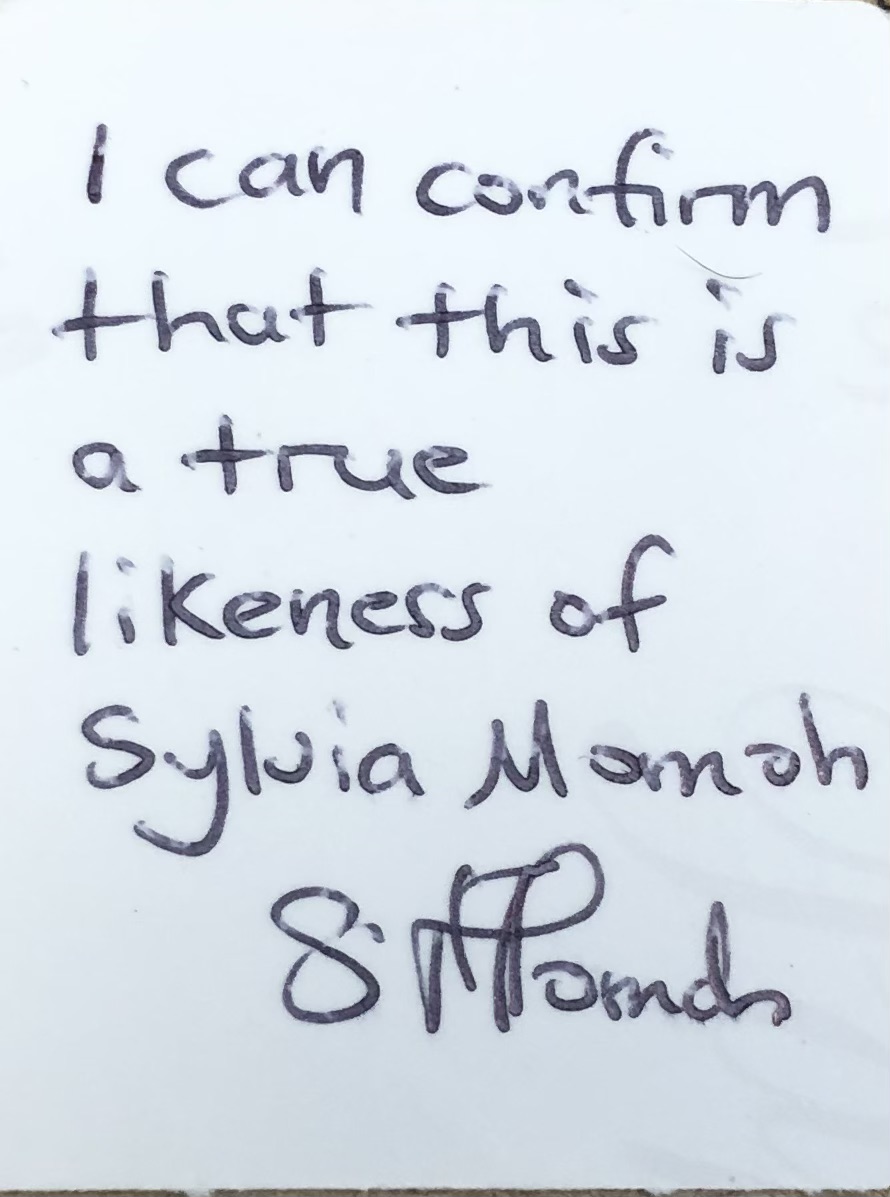 I can confirm
that this is
a true
likeness of
Sylvia Momoh
S. Momoh